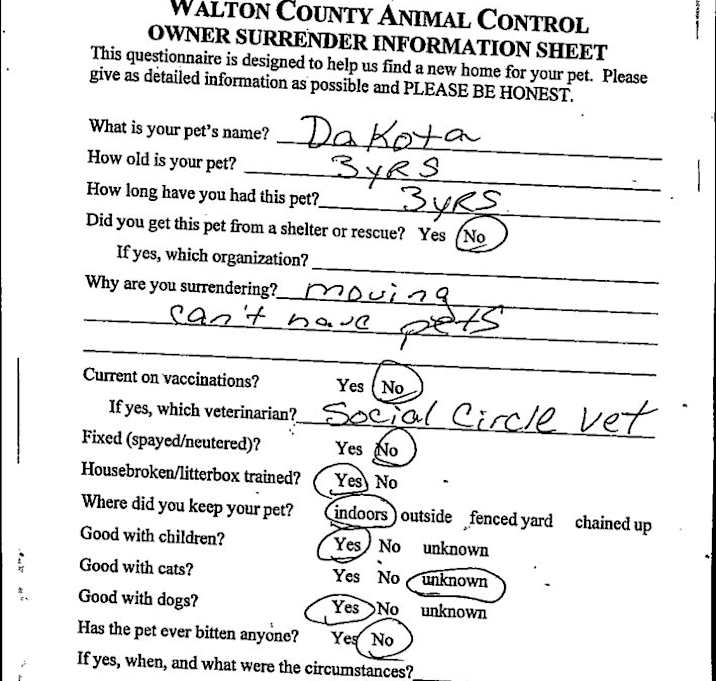 WALTON COUNTY ANIMAL CONTROL
OWNER SURRENDER INFORMATION SHEET
This questionnaire is designed to help us find a new home for your pet. Please
give as detailed information as possible and PLEASE BE HONEST.
What is your pet's name? Dakota
How old is your pet? 3 yRS
How long have you had this pet? 3 yRS
Did you get this pet from a shelter or rescue? Yes No
If yes, which organization?
Why are you surrendering? moving
can't have pets
Current on vaccinations? Yes No
If yes, which veterinarian? Social Circle Vet
Fixed (spayed/neutered)? Yes No
Housebroken/litterbox trained? Yes No
Where did you keep your pet? indoors outside fenced yard chained up
Good with children? Yes No unknown
Good with cats? Yes No unknown
Good with dogs? Yes No unknown
Has the pet ever bitten anyone? Yes No
If yes, when, and what were the circumstances?